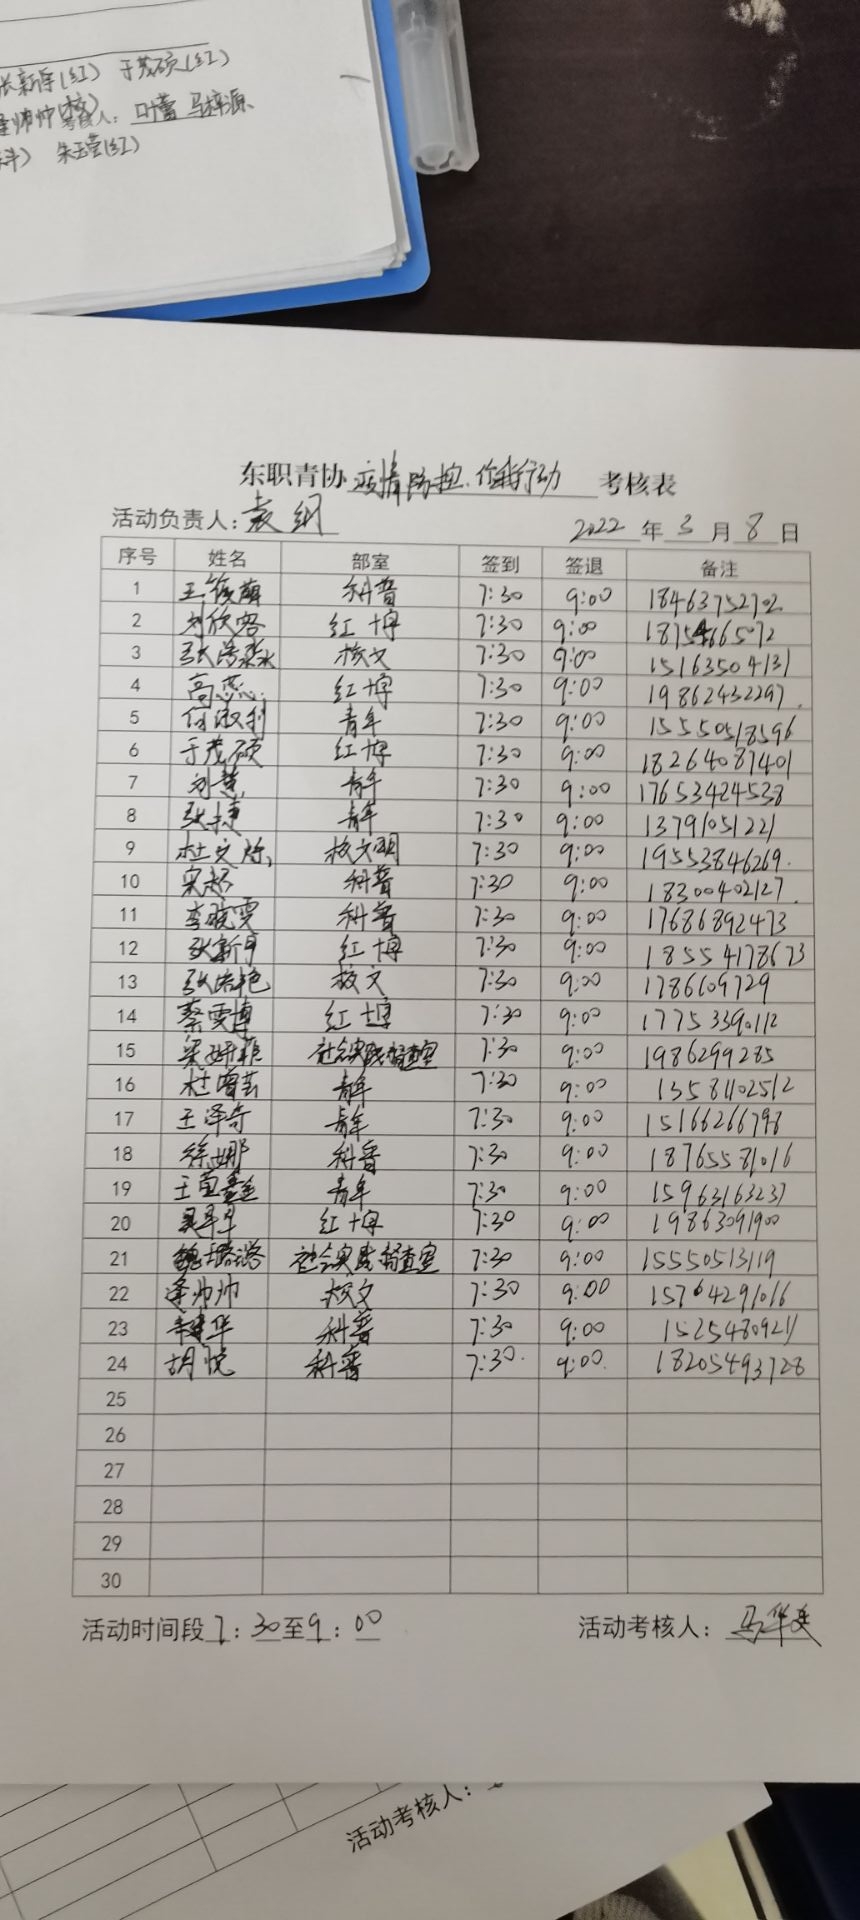 于茂硕(红)
考核人：叶蕾 马梓源
朱玉莹(红)
东职青协 疫情防控.你我行动 考核表
活动负责人：袁纲 2022 年 3 月 8 日
序号 姓名 部室 签到 签退 备注
1 科普 7:30 9:00 18463752702
2 刘欣容 红十字 7:30 9:00
3 校文 7:30 9:00 15163504131
4 高蕊 红十字 7:30 9:00 19862432297
5 何淑利 青年 7:30 9:00 15550518596
6 于茂硕 红十字 7:30 9:00 18264087401
7 刘慧 青年 7:30 9:00 17653424538
8 张捷 青年 7:30 9:00 13791051221
9 校文明 7:30 9:00 19553846269
10 宋超 科普 7:30 9:00 18300402127
11 李晓雯 科普 7:30 9:00 17686892473
12 红十字 7:30 9:00 18554178673
13 张浩艳 校文 7:30 9:00 1786609729
14 蔡雯博 红十字 7:30 9:00 17753390112
15 梁妍菲 社会实践督查室 7:30 9:00 1986299285
16 杜增芸 青年 7:30 9:00 13581102512
17 王泽奇 青年 7:30 9:00 15166266798
18 徐娜 科普 7:30 9:00 18765581016
19 青年 7:30 9:00 15963163237
20 红十字 7:30 9:00 19863091900
21 魏璐潞 社会实践督查室 7:30 9:00 15550513119
22 逄帅帅 校文 7:30 9:00 15764291016
23 科普 7:30 9:00 15254809211
24 胡悦 科普 7:30 9:00 18205493728
25
26
27
28
29
30
活动时间段 7：30至9：00 活动考核人：马华廷
活动考核人：